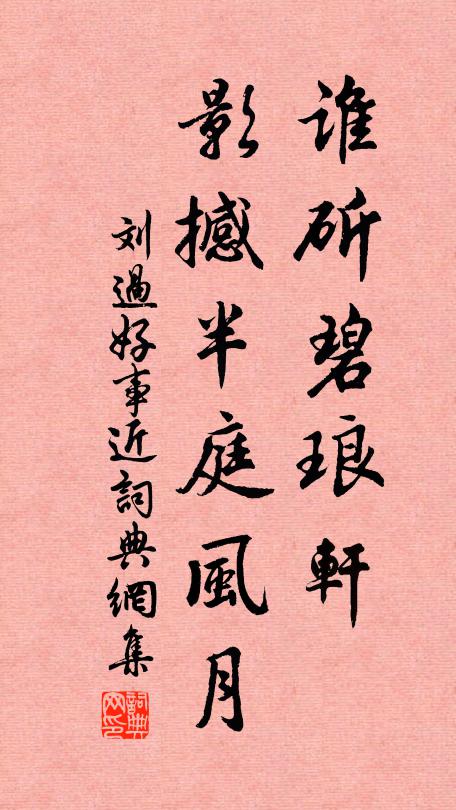 誰斫碧琅軒
影撼半庭風月
刘過好事近詞典網集
詞典网印